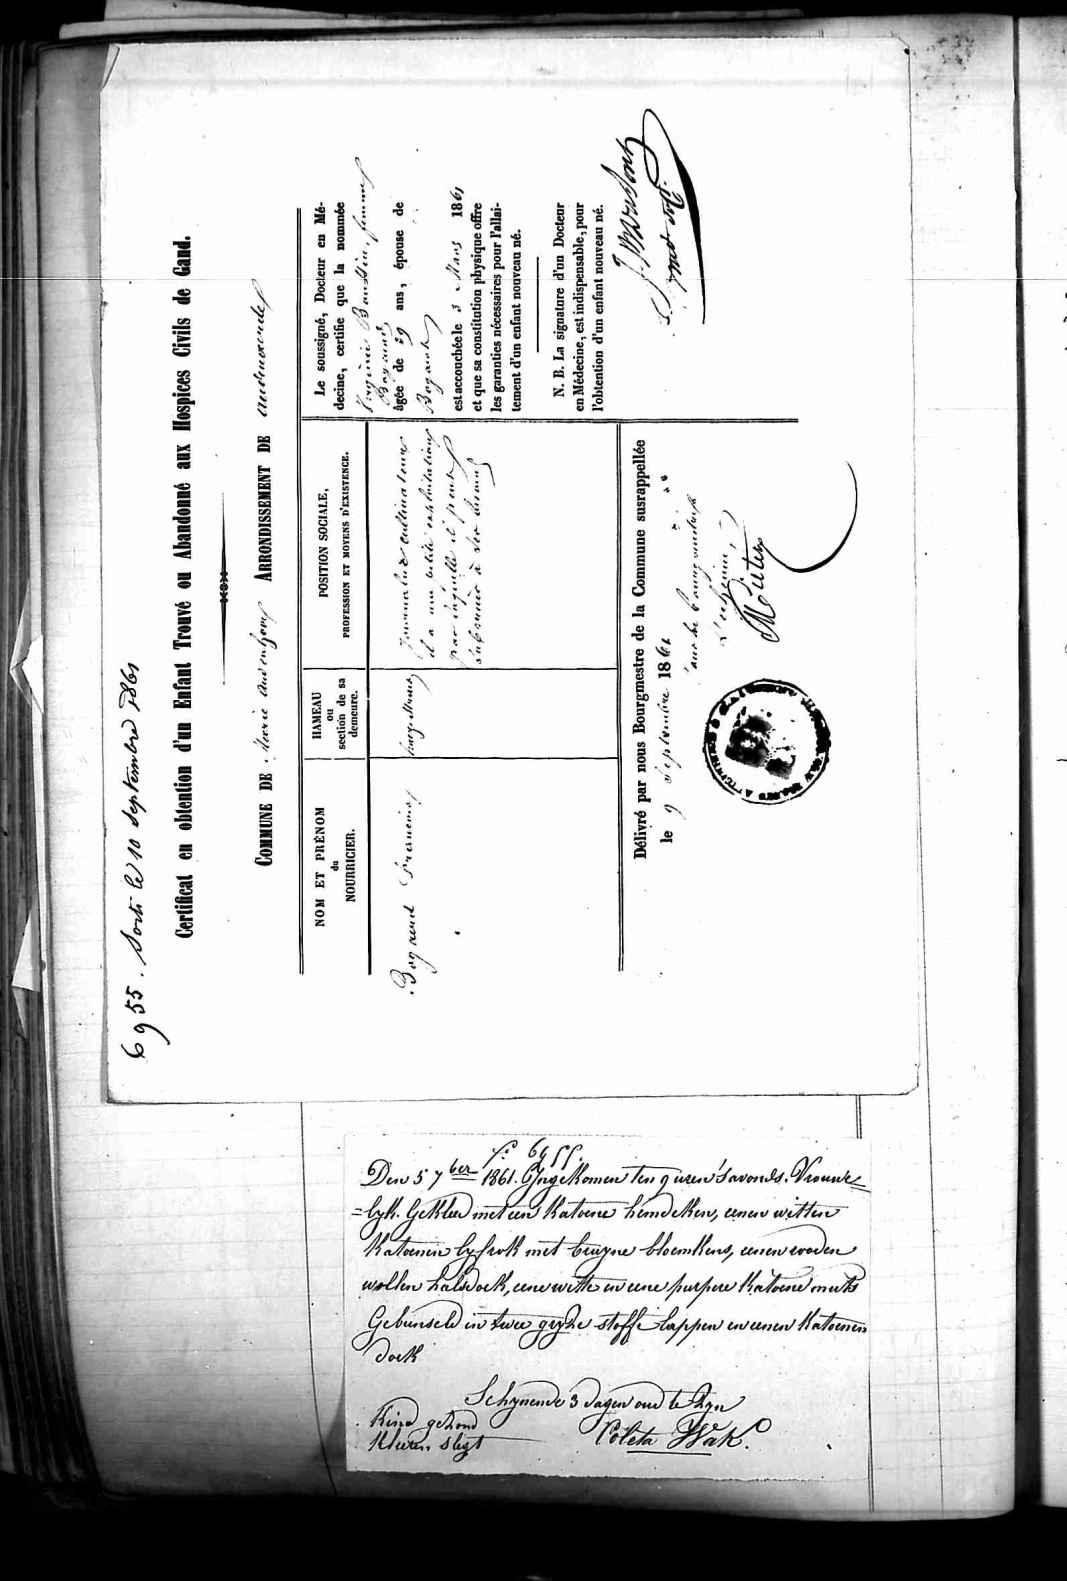 6955. Sorti le 10 Septembre 1861
Certificat en obtention d'un Enfant Trouvé ou Abandonné aux Hospices Civils de Gand.
COMMUNE DE Marie audenhove ARRONDISSEMENT DE audenaerde
NOM ET PRÉNOM
du
NOURRICIER.
HAMEAU
ou
section de sa
demeure.
POSITION SOCIALE,
PROFESSION ET MOYENS D'EXISTENCE.
Journalier cultivateur
il a une petite exploitation
par laquelle il peut
à ses besoins
Le soussigné, Docteur en Mé-
decine, certifie que la nommée
femme
âgée de 29 ans, épouse de
Bogaert
est accouchée le 3 Mars 1861
et que sa constitution physique offre
les garanties nécessaires pour l'allai-
tement d'un enfant nouveau né.
N. B. La signature d'un Docteur
en Médecine, est indispensable, pour
l'obtention d'un enfant nouveau né.
Délivré par nous Bourgmestre de la Commune susrappellée
le 9 Septembre 1861
L'echevin,
No 6955.
Den 5 7ber 1861. Ingekomen ten 9 uren 's avonds. Vrouwe-
=lyk. Gekleed met een katoene hemdeken, eenen witten
katoenen lyfrok met bruyne bloemkens, eenen rooden
wollen halsdoek, eene witte en eene purpere katoene muts
Gebunseld in twee gryze stoffe lappen en eenen katoenen
doek
Schynende 3 dagen oud te zyn
Kind gezond
kleeren slegt
Coleta Wak.